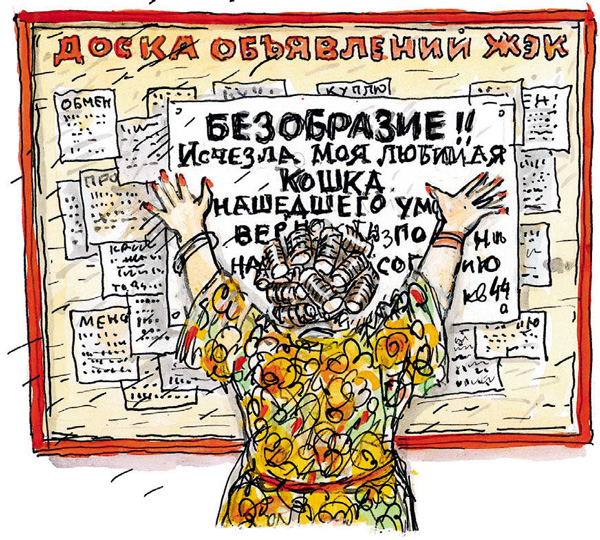 ДОСКА ОБЪЯВЛЕНИЙ ЖЭК
ОБМЕН
КУПЛЮ
ЕН
ПРО
МЕНЯ
БЕЗОБРАЗИЕ!!
ИСЧЕЗЛА МОЯ ЛЮБИМАЯ
КОШКА.
НАШЕДШЕГО УМО
ВЕРН ЗПО НИ
НА СОГ ИЮ
КВ 44
а